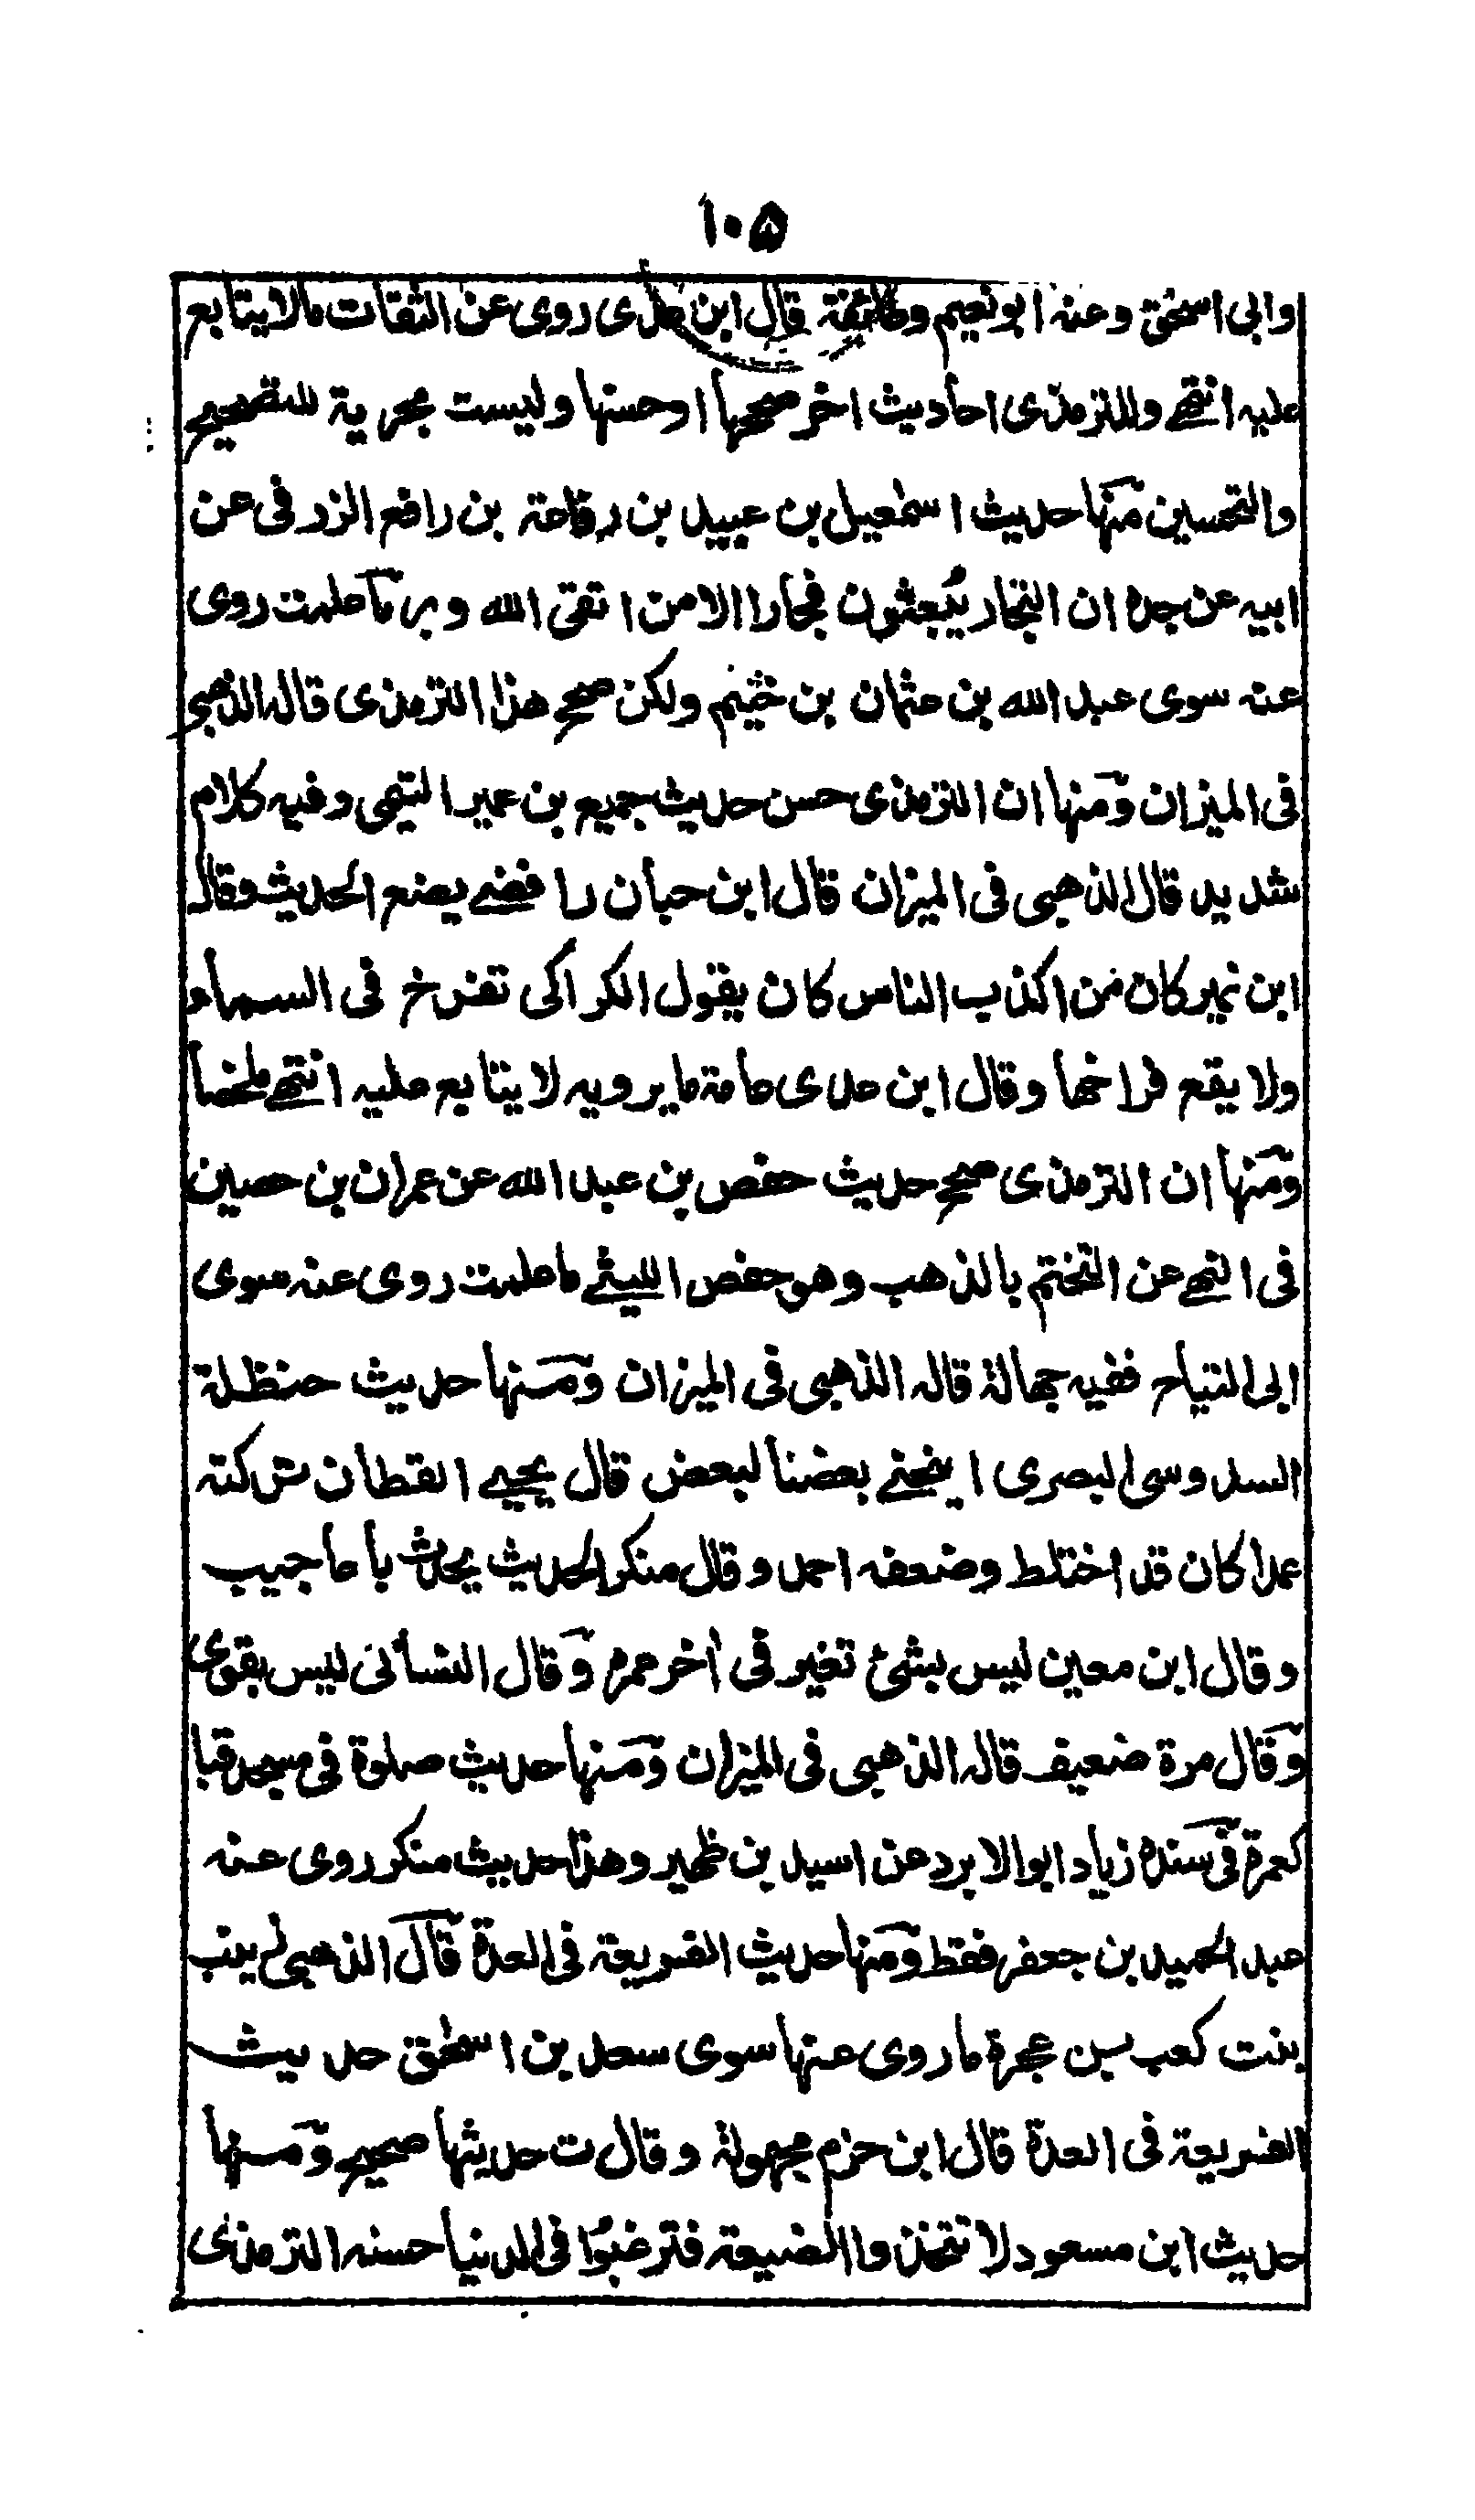 ۱۰۵
وابی اسحٰق وعنه ابونعیم وطائفة قال ابن عدی روی عن الثقات مالا یتابع
علیه انتھے وللترمذی احادیث اخر صححها او حسنها ولیست بحریة للتصحیح
والتحسین منها حدیث اسمٰعیل بن عبید بن رفاعة بن رافع الزرقی عن
ابیه عن جده ان التجار یُبعثون فجارا الا من اتقی الله وبر ما علمت روی
عنه سوی عبد الله بن عثمان بن خثیم ولکن صحح هذا الترمذی قاله الذهبی
فی المیزان ومنها ان الترمذی حسن حدیث جمیع بن عمیر التیمی وفیه کلام
شدید قال الذهبی فی المیزان قال ابن حبان رافضے یضع الحدیث وقال
ابن نمیر کان من اکذب الناس کان یقول الکراکی تفرخ فی السماء
ولا یقع فراخها وقال ابن عدی عامة ما یرویه لا یتابع علیه انتھے ملخصا
ومنها ان الترمذی صحح حدیث حفص بن عبد الله عن عمران بن حصین
فی النهے عن التختم بالذهب وهو حفص اللیثے ما علمت روی عنه سوی
ابی التیاح ففیه جهالة قاله الذهبی فی المیزان ومنها حدیث حنظلة
السدوسی البصری اینحنے بعضنا لبعض قال یحیے القطان ترکته
عمدا کان قد اختلط وضعفه احمد وقال منکر الحدیث یحدث باعاجیب
وقال ابن معین لیس بشئ تغیر فی اٰخر عمره وقال النسائی لیس بقوی
وقال مرة ضعیف قاله الذهبی فی المیزان ومنها حدیث صلوة فی مسجد قبا
کعمرة فی سنده زیاد ابو الابرد عن اسید بن ظهیر وهذا حدیث منکر روی عنه
عبد الحمید بن جعفر فقط ومنها حدیث الفریعة فی العدة قال الذهبی زینب
بنت کعب بن عجرة ما روی عنها سوی سعد بن اسحٰق حدیث
الفریعة فی العدة قال ابن حزم مجهولة وقال ت حدیثها صحیح ومنها
حدیث ابن مسعود لا تتخذوا الضیعة فترغبوا فی الدنیا حسنه الترمذی